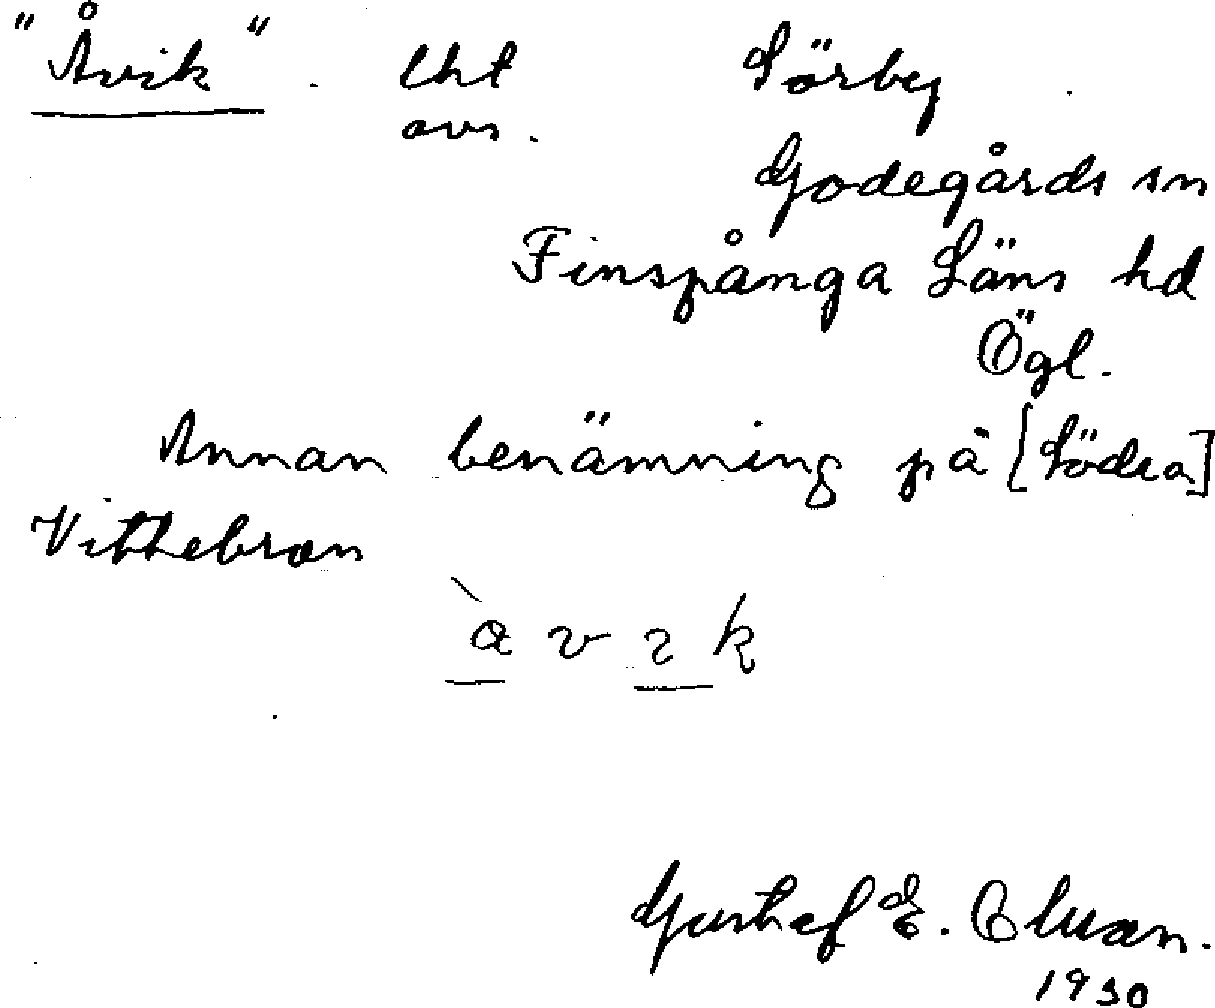 "Åvik". lht Sörby
avs. Godegårds sn
Finspånga Läns hd
Ögl.
Annan benämning på [Södra]
Vittebran
àvık
Gustaf E.
1930